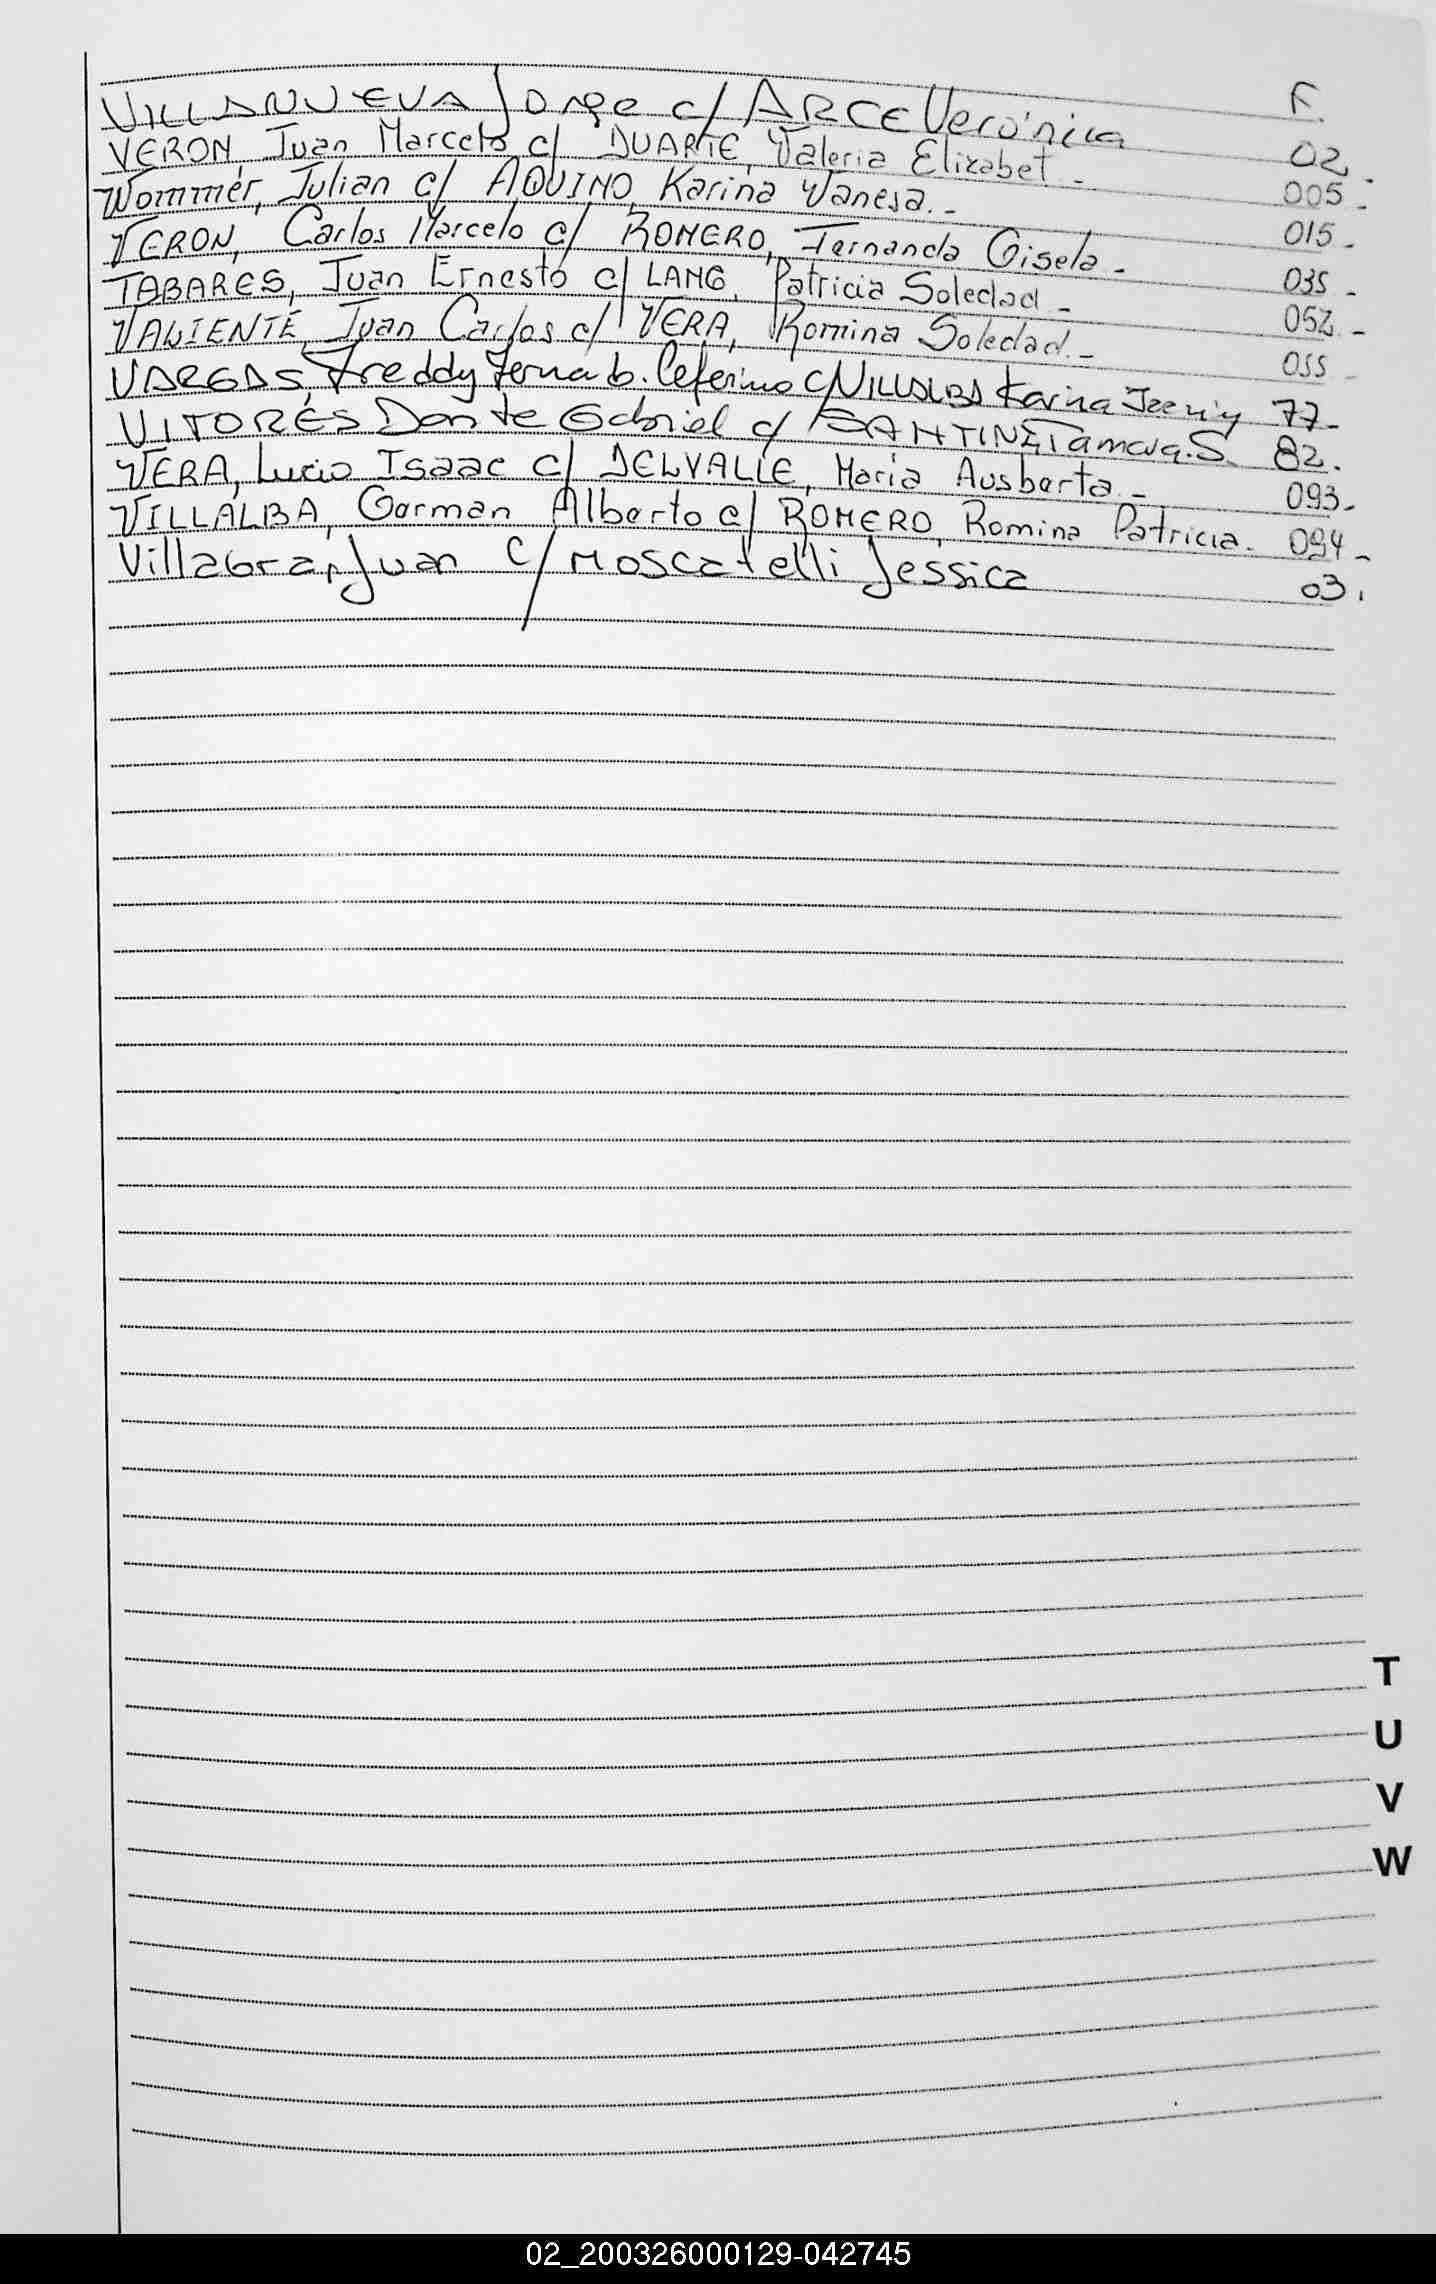 F.
VILLANUEVA Jorge c/ ARCE Verónica 02.
VERON Juan Marcelo c/ DUARTE, Valeria Elizabet - 005.
Wommer, Julian c/ AQUINO, Karina Vanesa. - 015.
VERON, Carlos Marcelo c/ ROMERO, Fernanda Gisela - 035.
TABARES, Juan Ernesto c/ LANG, Patricia Soledad - 052.
VALIENTE, Juan Carlos c/ VERA, Romina Soledad. - 055
VARGAS, Freddy Ceferino c/ VILLALBA Karina 77.
VITORES Dante Gabriel c/ Tamara. S. 82.
VERA, Lucio Isaac c/ DELVALLE, Maria Ausberta. - 093.
VILLALBA, German Alberto c/ ROMERO, Romina Patricia. 094.
Villagra, Juan c/ Moscatelli Jessica 03.
T
U
V
W
02_200326000129-042745